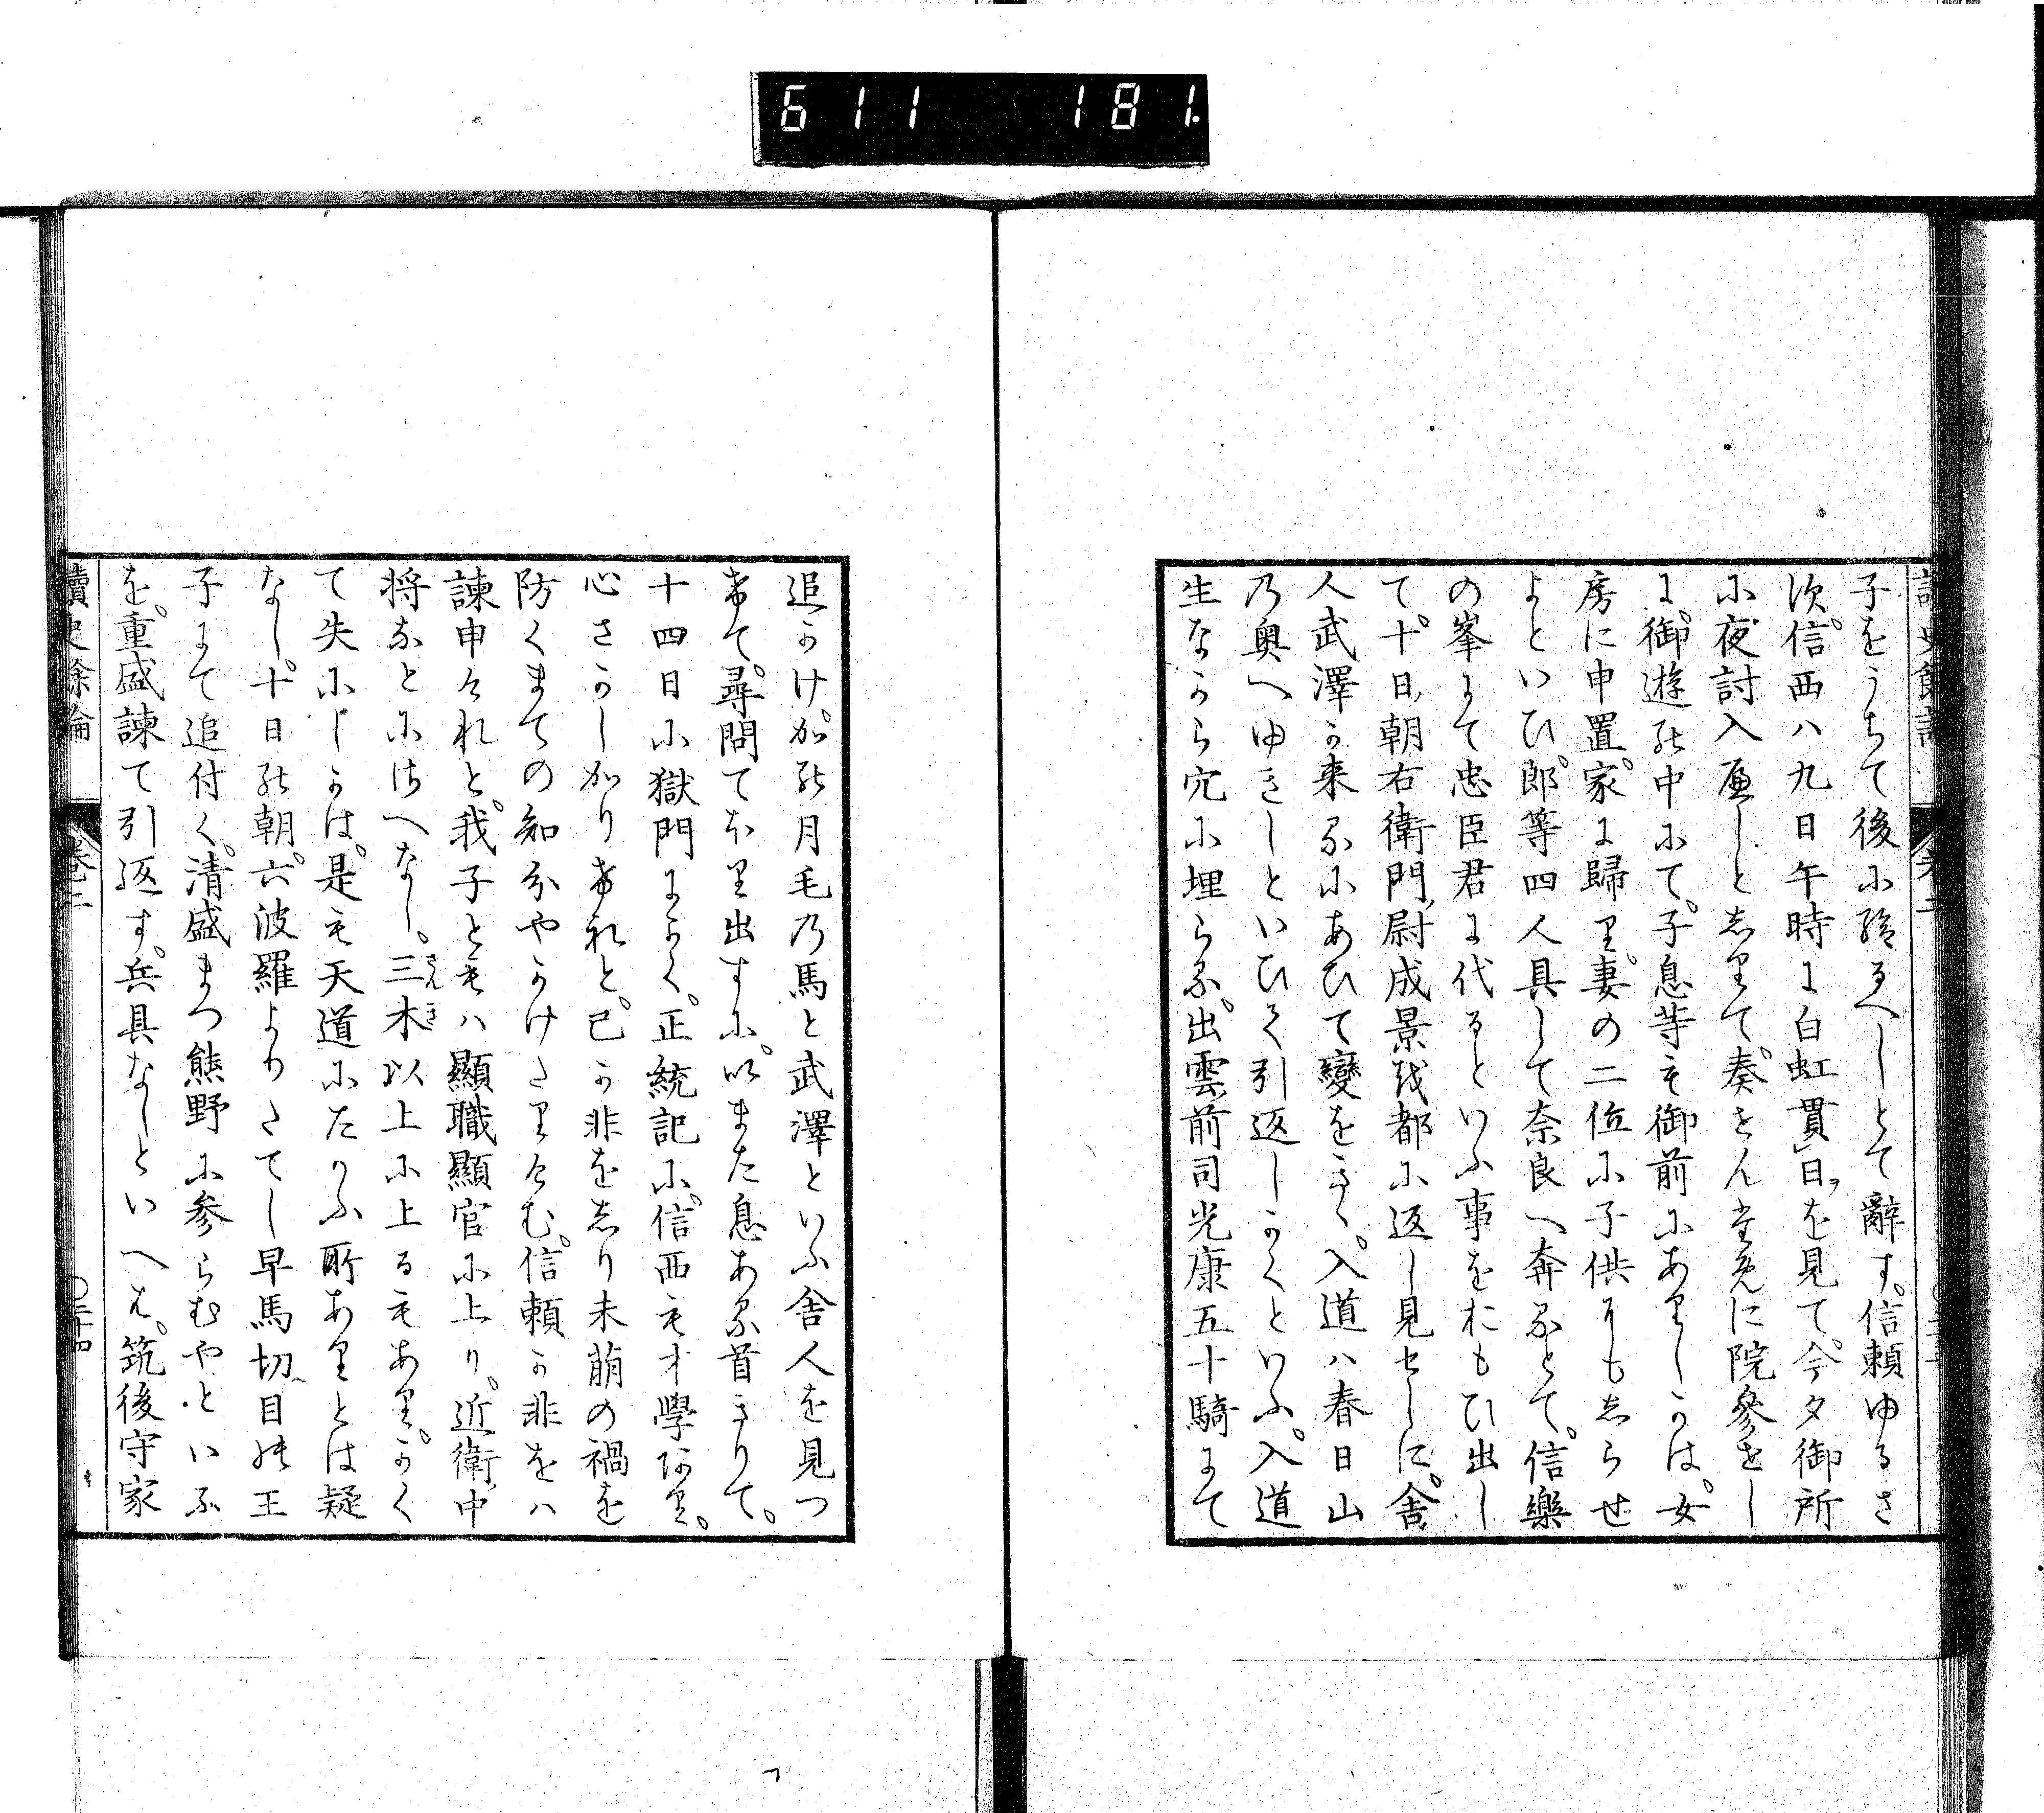 611 181.
讀史餘論 巻二
子をうちて後に給るへしとて辭す。信頼ゆるさ
す。信西ハ九日午時に白虹貫日を見て。今夕御所
に夜討入へしとしりて。奏せんために院參をし
に。御遊の中にて。子息等も御前にありしかは。女
房に申置。家に歸り。妻の二位に子供にもしらせ
よといひ。郎等四人具して奈良へ奔るとて。信樂
の峯にて忠臣君に代るといふ事をおもひ出し
て。十日朝右衛門尉成景を都に返し見セしに。舎
人武澤か来るにあひて變をきく。入道ハ春日山
乃奥へゆきしといひて引返しかくといふ。入道
生なから穴に埋らる。出雲前司光康五十騎にて
追かけ。かの月毛乃馬と武澤といふ舎人を見つ
けて。尋問てほり出すに。いまた息ある首きりて。
十四日に獄門にかく。正統記に。信西も才學あり。
心さかしかりけれと。己か非をしり未萠の禍を
防くまての知分やかけたりけむ。信頼か非をハ
諫申けれと。我子ともハ顯職顯官に上り。近衛中
将なとにさへなし。三木さんき以上に上るもあり。かく
て失にしかは。是も天道にたかふ所ありとは疑
なし。十日の朝。六波羅よりたてし早馬切目の王
子にて追付く。清盛まつ熊野に参らむやといふ
を。重盛諫て引返す。兵具なしといへは。筑後守家
讀史餘論 巻二 〇二十四